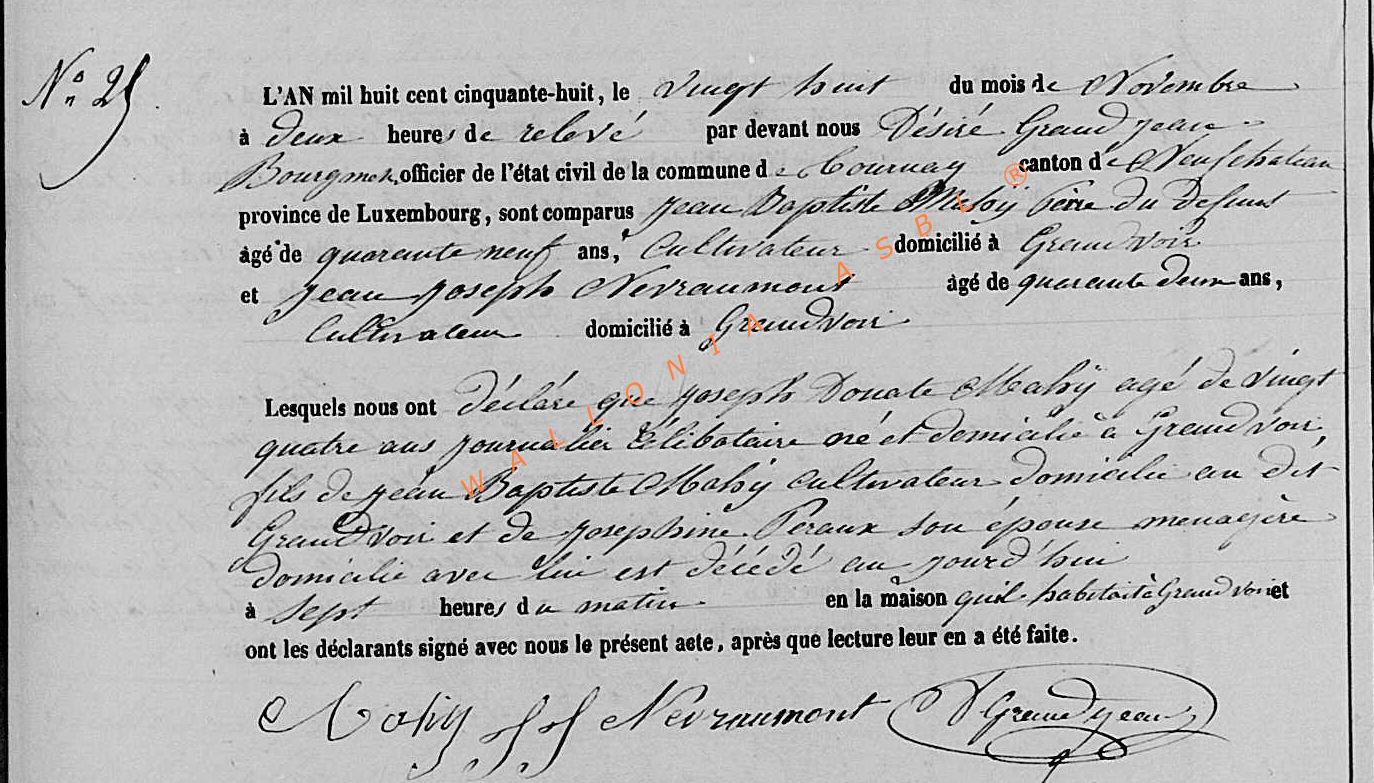 N° 25.
L'AN mil huit cent cinquante-huit, le vingt huit du mois de Novembre
à deux heures de relevé par devant nous Désiré Grandjean
Bourgmes. officier de l'état civil de la commune de Tournay canton de Neufchateau
province de Luxembourg, sont comparus Jean Baptiste Mahÿ Père du Defunt
âgé de quarante neuf ans, Cultivateur domicilié à Grandvoir
et Jean Joseph Nevraumont âgé de quarante deux ans,
Cultivateur domicilié à Grandvoir
Lesquels nous ont déclaré que Joseph Donate Mahÿ agé de vingt
quatre ans journalier Célibataire né et domicilié à Grandvoir,
fils de Jean Baptiste Mahÿ Cultivateur domicilié au dit
Grandvoir et de Josephine Peraux son épouse menagère
domicilié avec lui est décédé au jourd'hui
à sept heures du matin en la maison quil habitait à Grandvoir et
ont les déclarants signé avec nous le présent acte, après que lecture leur en a été faite.
Mahÿ JJ Nevraumont D Grandjean
WALLONIA ASBL ®